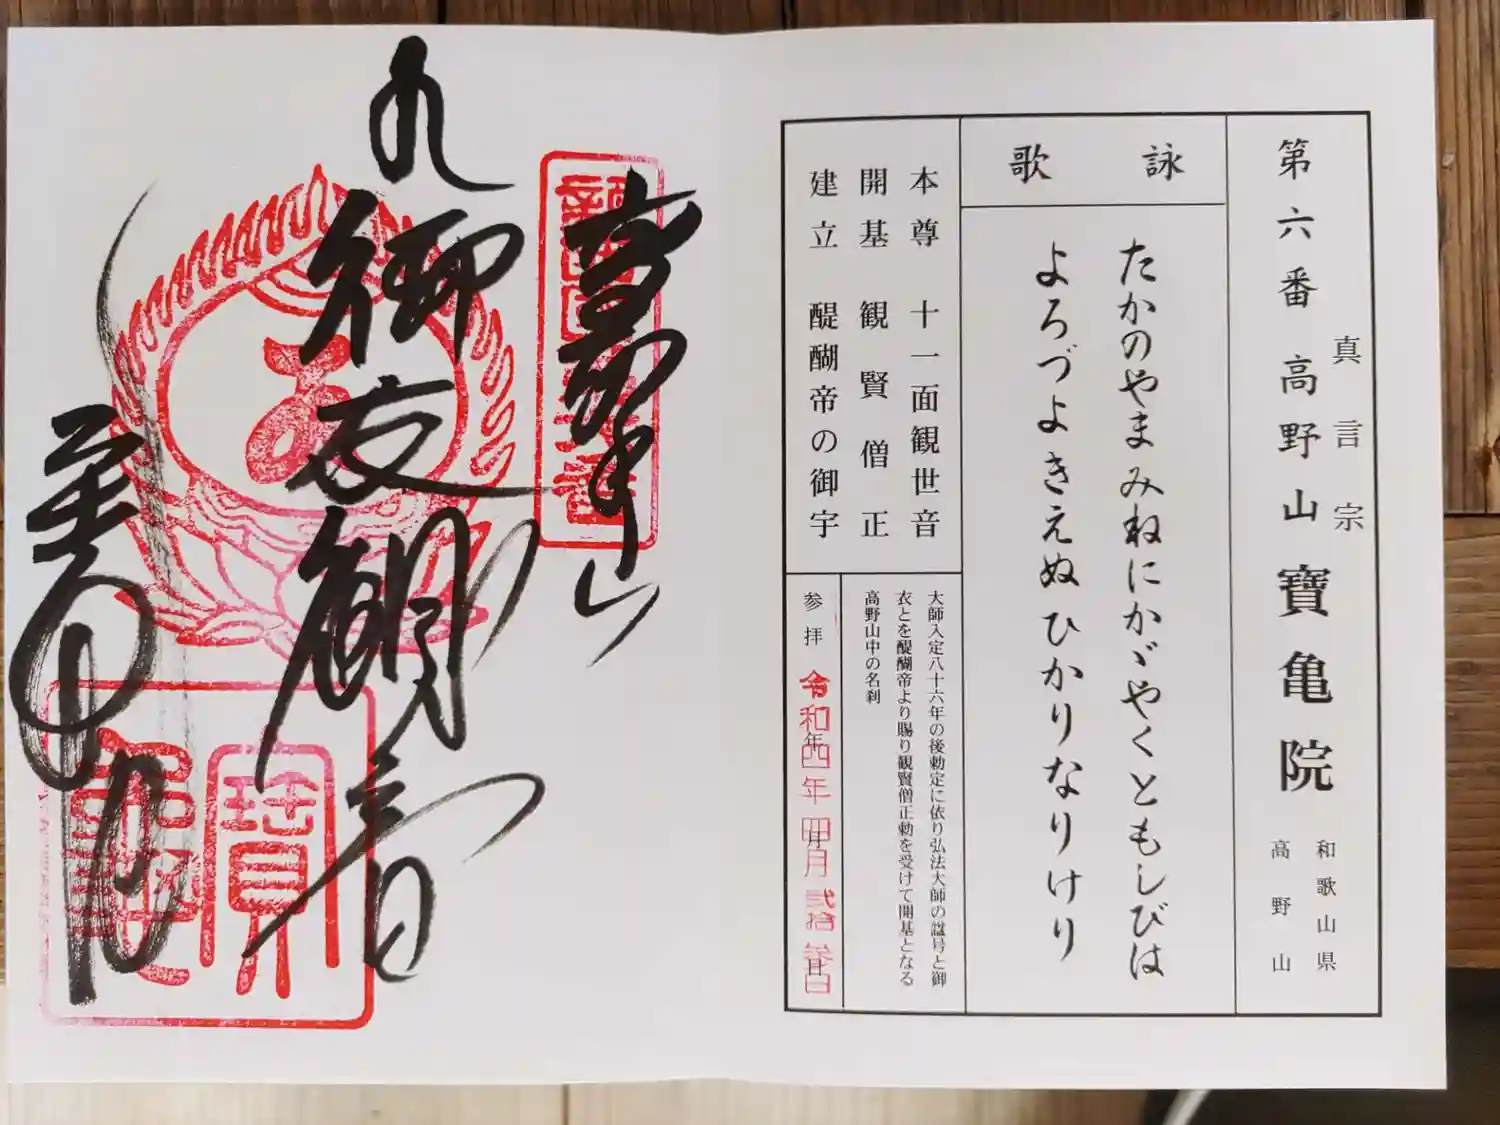 真言宗
第六番 高野山 寶亀院
和歌山県
高野山
詠歌
たかのやま みねにかゞやくともしびは
よろづよきえぬ ひかりなりけり
本尊 十一面観世音
開基 観賢僧正
建立 醍醐帝の御宇
大師入定八十六年の後勅定に依り弘法大師の諡号と御
衣とを醍醐帝より賜り観賢僧正勅を受けて開基となる
高野山中の名刹
参拝 令和四年四月弐拾参日
年 月 日
高野山
御衣観音
寶亀院